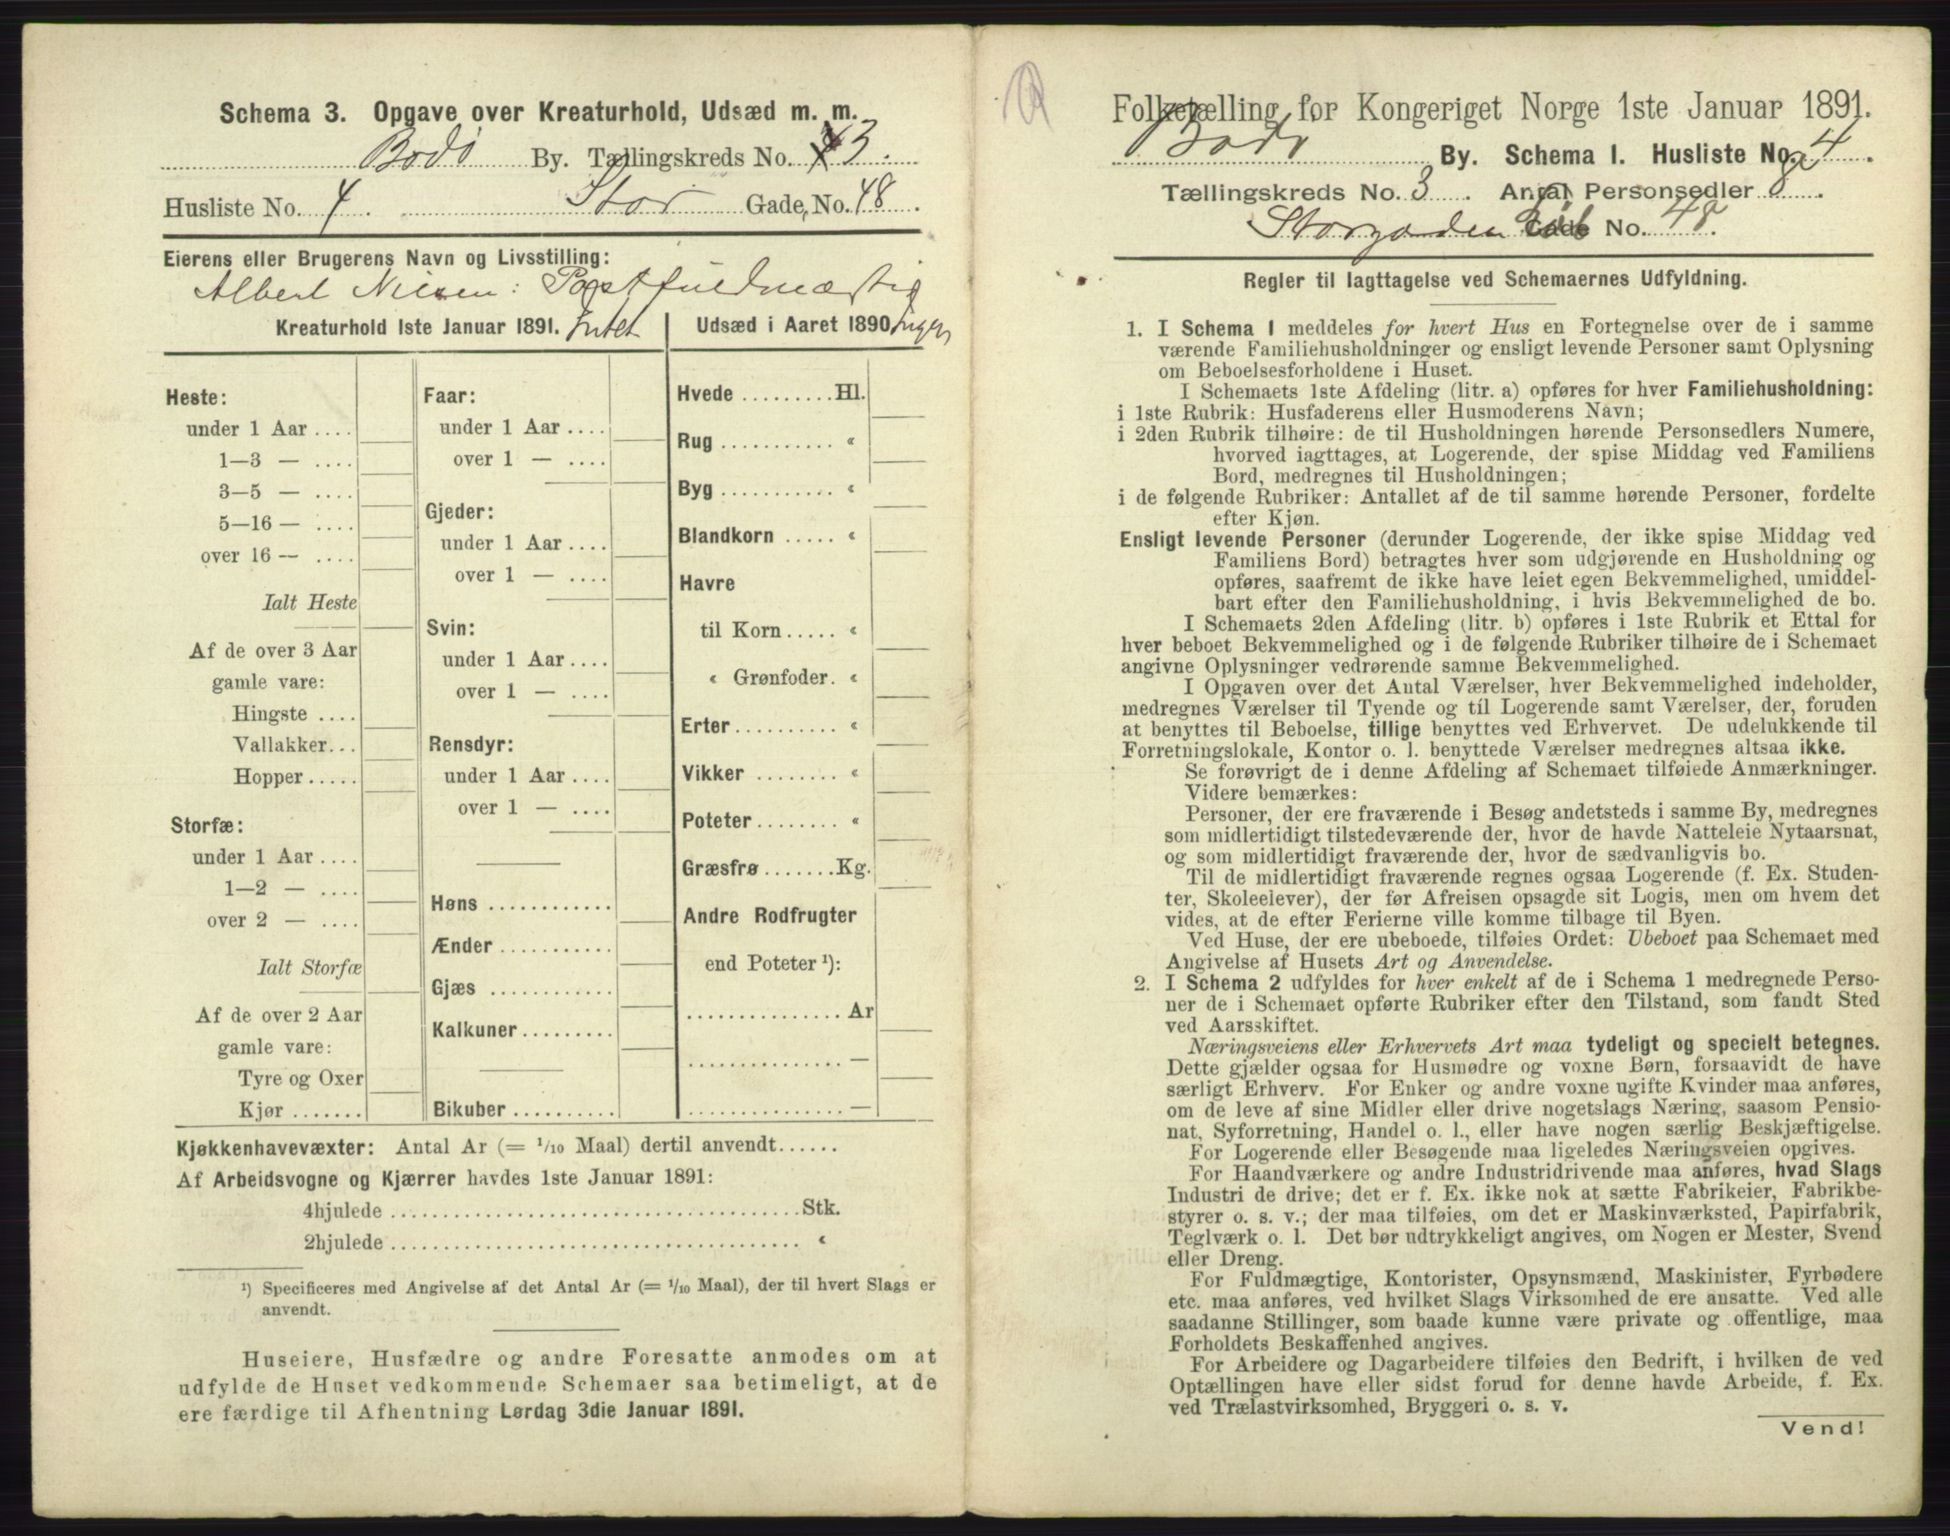 Schema 3. Opgave over Kreaturhold, Udsæd m. m.
Bodø By. Tællingskreds No. 3.
Husliste No. 4 Stor Gade, No. 48
Eierens eller Brugerens Navn og Livsstilling:
Albert Nilsen: Postfuldmægtig
Kreaturhold 1ste Januar 1891. Intet
Heste:
under 1 Aar ....
1—3 — ....
3—5 — ....
5—16 — ....
over 16 — ....
Ialt Heste
Af de over 3 Aar
gamle vare:
Hingste ....
Vallakker...
Hopper.....
Storfæ:
under 1 Aar ....
1—2 — ....
over 2 — ....
Ialt Storfæ
Af de over 2 Aar
gamle vare:
Tyre og Oxer
Kjør .......
Faar:
under 1 Aar ....
over 1 — ....
Gjeder:
under 1 Aar ....
over 1 — ....
Svin:
under 1 Aar ....
over 1 — ....
Rensdyr:
under 1 Aar ....
over 1 — ....
Høns ............
Ænder ...........
Gjæs ............
Kalkuner.........
Bikuber ..........
Udsæd i Aaret 1890 Ingen
Hvede .........Hl.
Rug ........... «
Byg ........... «
Blandkorn ..... «
Havre
til Korn..... «
« Grønfoder. «
Erter.......... «
Vikker ........ «
Poteter........ «
Græsfrø .......Kg.
Andre Rodfrugter
end Poteter ¹):
............... Ar
............... —
............... —
Kjøkkenhavevæxter: Antal Ar (= 1/10 Maal) dertil anvendt......
Af Arbeidsvogne og Kjærrer havdes 1ste Januar 1891:
4hjulede ........................................Stk.
2hjulede ........................................ «
¹) Specificeres med Angivelse af det Antal Ar (= 1/10 Maal), der til hvert Slags er
anvendt.
Huseiere, Husfædre og andre Foresatte anmodes om at
udfylde de Huset vedkommende Schemaer saa betimeligt, at de
ere færdige til Afhentning Lørdag 3die Januar 1891.
Folketælling for Kongeriget Norge 1ste Januar 1891.
Bodø By. Schema I. Husliste No. 4.
Tællingskreds No. 3. Antal Personsedler 8.
Storgaden Gade No. 48.
Regler til Iagttagelse ved Schemaernes Udfyldning.
1. I Schema 1 meddeles for hvert Hus en Fortegnelse over de i samme
værende Familiehusholdninger og ensligt levende Personer samt Oplysning
om Beboelsesforholdene i Huset.
I Schemaets 1ste Afdeling (litr. a) opføres for hver Familiehusholdning:
i 1ste Rubrik: Husfaderens eller Husmoderens Navn;
i 2den Rubrik tilhøire: de til Husholdningen hørende Personsedlers Numere,
hvorved iagttages, at Logerende, der spise Middag ved Familiens
Bord, medregnes til Husholdningen;
i de følgende Rubriker: Antallet af de til samme hørende Personer, fordelte
efter Kjøn.
Ensligt levende Personer (derunder Logerende, der ikke spise Middag ved
Familiens Bord) betragtes hver som udgjørende en Husholdning og
opføres, saafremt de ikke have leiet egen Bekvemmelighed, umiddel-
bart efter den Familiehusholdning, i hvis Bekvemmelighed de bo.
I Schemaets 2den Afdeling (litr. b) opføres i 1ste Rubrik et Ettal for
hver beboet Bekvemmelighed og i de følgende Rubriker tilhøire de i Schemaet
angivne Oplysninger vedrørende samme Bekvemmelighed.
I Opgaven over det Antal Værelser, hver Bekvemmelighed indeholder,
medregnes Værelser til Tyende og til Logerende samt Værelser, der, foruden
at benyttes til Beboelse, tillige benyttes ved Erhvervet. De udelukkende til
Forretningslokale, Kontor o. l. benyttede Værelser medregnes altsaa ikke.
Se forøvrigt de i denne Afdeling af Schemaet tilføiede Anmærkninger.
Videre bemærkes:
Personer, der ere fraværende i Besøg andetsteds i samme By, medregnes
som midlertidigt tilstedeværende der, hvor de havde Natteleie Nytaarsnat,
og som midlertidigt fraværende der, hvor de sædvanligvis bo.
Til de midlertidigt fraværende regnes ogsaa Logerende (f. Ex. Studen-
ter, Skoleelever), der før Afreisen opsagde sit Logis, men om hvem det
vides, at de efter Ferierne ville komme tilbage til Byen.
Ved Huse, der ere ubeboede, tilføies Ordet: Ubeboet paa Schemaet med
Angivelse af Husets Art og Anvendelse.
2. I Schema 2 udfyldes for hver enkelt af de i Schema 1 medregnede Perso-
ner de i Schemaet opførte Rubriker efter den Tilstand, som fandt Sted
ved Aarsskiftet.
Næringsveiens eller Erhvervets Art maa tydeligt og specielt betegnes.
Dette gjælder ogsaa for Husmødre og voxne Børn, forsaavidt de have
særligt Erhverv. For Enker og andre voxne ugifte Kvinder maa anføres,
om de leve af sine Midler eller drive nogetslags Næring, saasom Pensio-
nat, Syforretning, Handel o. l., eller have nogen særlig Beskjæftigelse.
For Logerende eller Besøgende maa ligeledes Næringsveien opgives.
For Haandværkere og andre Industridrivende maa anføres, hvad Slags
Industri de drive; det er f. Ex. ikke nok at sætte Fabrikeier, Fabrikbe-
styrer o. s. v.; der maa tilføies, om det er Maskinværksted, Papirfabrik,
Teglværk o. l. Det bør udtrykkeligt angives, om Nogen er Mester, Svend
eller Dreng.
For Fuldmægtige, Kontorister, Opsynsmænd, Maskinister, Fyrbødere
etc. maa anføres, ved hvilket Slags Virksomhed de ere ansatte. Ved alle
saadanne Stillinger, som baade kunne være private og offentlige, maa
Forholdets Beskaffenhed angives.
For Arbeidere og Dagarbeidere tilføies den Bedrift, i hvilken de ved
Optællingen have eller sidst forud for denne havde Arbeide, f. Ex.
ved Trælastvirksomhed, Bryggeri o. s. v.
Vend!